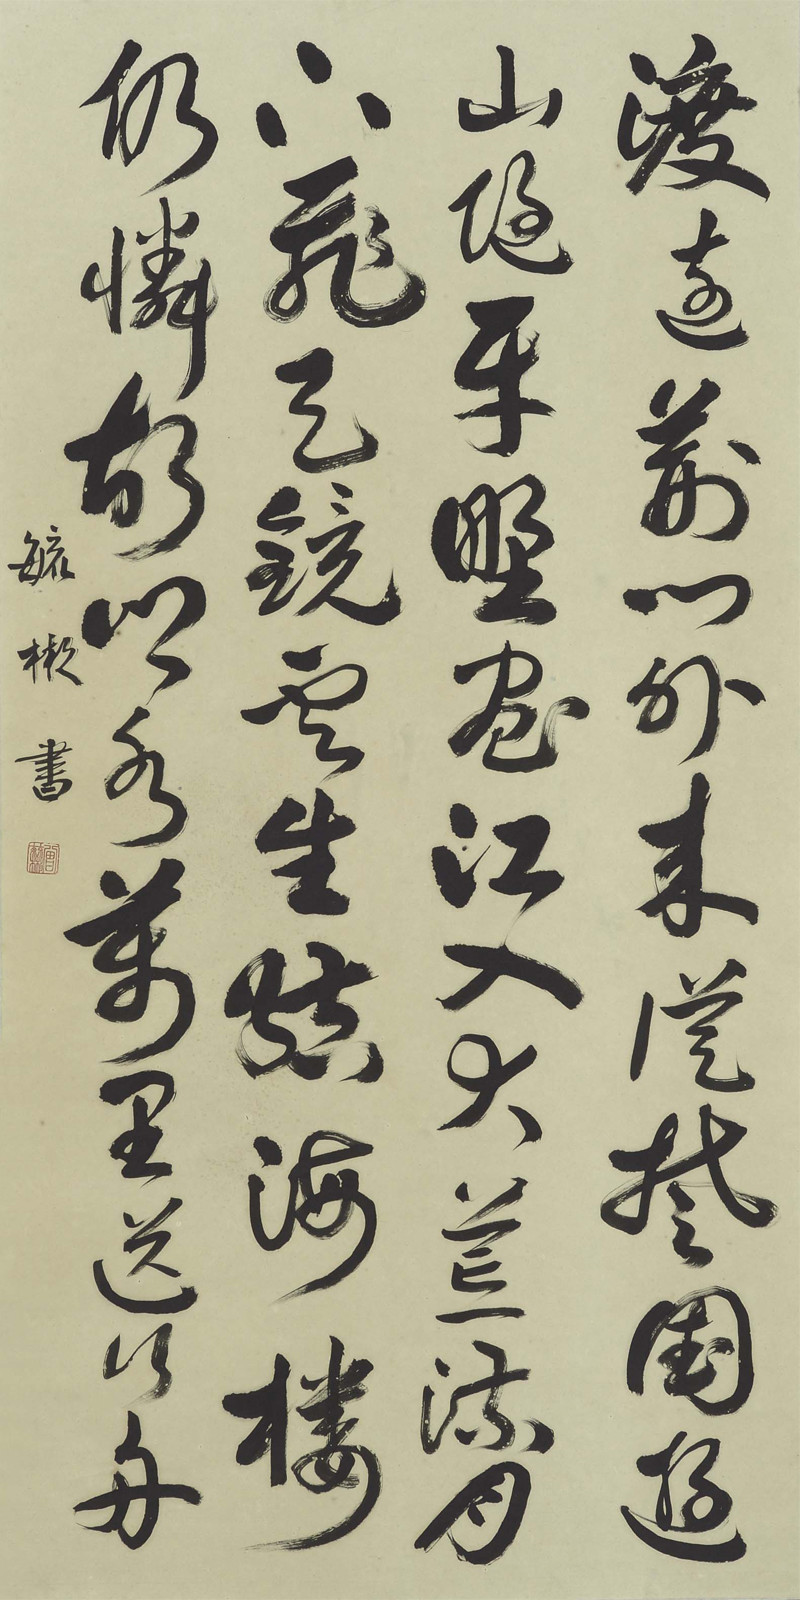 渡遠荊門外來從楚國遊
山隨平野盡江入大荒流月
下飛天鏡雲生結海樓
仍憐故鄉水萬里送行舟
毓 書